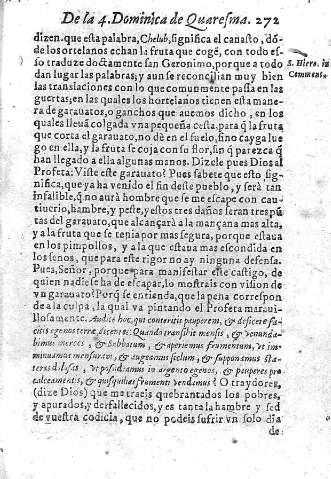 De la 4. Dominica de Quaresma. 272
dizen. que esta palabra, Chelub, significa el canasto, dõ-
de los ortelanos echan la fruta que cogẽ, con todo es-
so traduze doctamente san Geronimo, porque a todo
dan lugar las palabras; y aun se reconcilian muy bien
las translaciones con lo que comunmente passa en las
guertas; en las quales los hortelanos tienen esta mane-
ra de garauatos, o ganchos que auemos dicho, en los
quales lleuã colgada vna pequeña cesta, para q̃ la fruta
que corta el garauato, no dè en el suelo, sino cayga lue-
go en ella, y la fruta se coja con su flor, sin q̃ parezca q̃
han llegado a ella algunas manos. Dizele pues Dios al
Profeta: Viste este garauato? Pues sabete que esto, sig-
nifica, que ya ha venido el fin deste pueblo, y serà tan
infalible, q̃ no aurà hombre que se me escape con cau-
tiuerio, hambre, y peste, y estos tres daños seran tres pũ
tas del garauato, que alcançarà a la mançana mas alta,
y a la fruta que se tenia por mas segura, porque estaua
en los pimpollos, y a la que estaua mas escondida en
los senos, que para este rigor no ay ninguna defensa.
Pues, Señor, porque para manifestar este castigo, de
quien nadie se ha de escapar, lo mostrais con vision de
vn garauato? Porq̃ se entienda, que la pena correspon
de a la culpa, la qual va pintando el Profeta maraui-
llosamente. Audite hoc, qui conteritis pauperem, & deficere fa-
citis egenos terræ, dicentes: Quando transibit mensis, & venunda-
bimus merces, & Sabbatum, & aperiemus frumentum, vt im-
minuamus mensuram, & augeamus siclum, & supponamus sta-
teras dolosas, vt possideamus in argento egenos, & pauperes pro
calceamentis, & quisquilias frumenti vendamus? O traydores,
(dize Dios) que me traeis quebrantados los pobres,
y apurados, y desfallecidos, y es tanta la hambre y sed
de vuestra codicia, que no podeis sufrir vn solo dia
de:
S. Hiero. in
Comment.